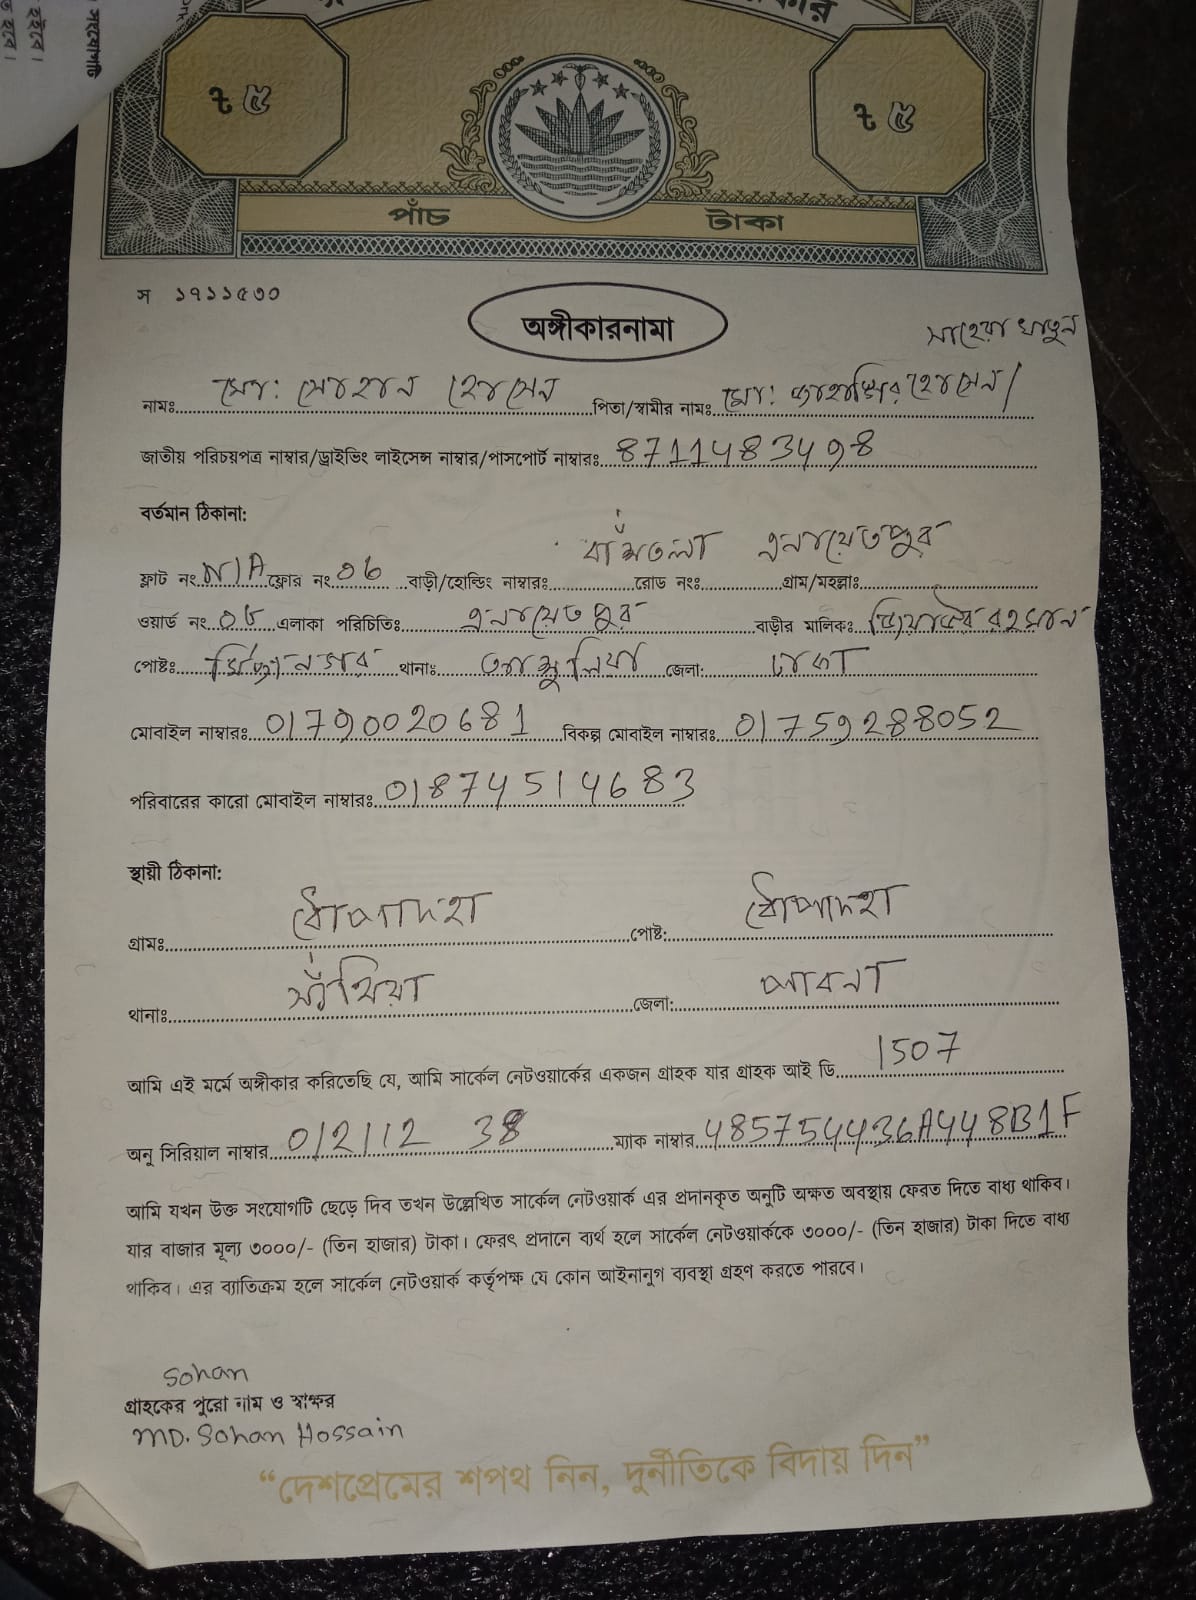 ৳ ৫
৳ ৫
পাঁচ টাকা
স ১৭১১৫৩০
অঙ্গীকারনামা
সাহেরা খাতুন
নামঃ মো: সোহান হোসেন পিতা/স্বামীর নামঃ মো: জাহাঙ্গির হোসেন/
জাতীয় পরিচয়পত্র নাম্বার/ড্রাইভিং লাইসেন্স নাম্বার/পাসপোর্ট নাম্বারঃ 8711483498
বর্তমান ঠিকানা:
বাঁশতলা এনায়েতপুর
ফ্লাট নং N/A ফ্লোর নং 06 বাড়ী/হোল্ডিং নাম্বারঃ রোড নংঃ গ্রাম/মহল্লাঃ
ওয়ার্ড নং 05 এলাকা পরিচিতিঃ এনায়েতপুর বাড়ীর মালিকঃ রহমান
পোষ্টঃ থানাঃ আশুলিয়া জেলা: ঢাকা
মোবাইল নাম্বারঃ 01790020681 বিকল্প মোবাইল নাম্বারঃ 01759288052
পরিবারের কারো মোবাইল নাম্বারঃ 01874514683
স্থায়ী ঠিকানা:
গ্রামঃ ধোপাদহা পোষ্ট: ধোপাদহা
থানাঃ সাঁথিয়া জেলা: পাবনা
আমি এই মর্মে অঙ্গীকার করিতেছি যে, আমি সার্কেল নেটওয়ার্কের একজন গ্রাহক যার গ্রাহক আই ডি 1507
অনু সিরিয়াল নাম্বার 012112 38 ম্যাক নাম্বার 485754436A448B1F
আমি যখন উক্ত সংযোগটি ছেড়ে দিব তখন উল্লেখিত সার্কেল নেটওয়ার্ক এর প্রদানকৃত অনুটি অক্ষত অবস্থায় ফেরত দিতে বাধ্য থাকিব।
যার বাজার মূল্য ৩০০০/- (তিন হাজার) টাকা। ফেরৎ প্রদানে ব্যর্থ হলে সার্কেল নেটওয়ার্ককে ৩০০০/- (তিন হাজার) টাকা দিতে বাধ্য
থাকিব। এর ব্যাতিক্রম হলে সার্কেল নেটওয়ার্ক কর্তৃপক্ষ যে কোন আইনানুগ ব্যবস্থা গ্রহণ করতে পারবে।
Sohan
গ্রাহকের পুরো নাম ও স্বাক্ষর
MD. Sohan Hossain
“দেশপ্রেমের শপথ নিন, দুর্নীতিকে বিদায় দিন”